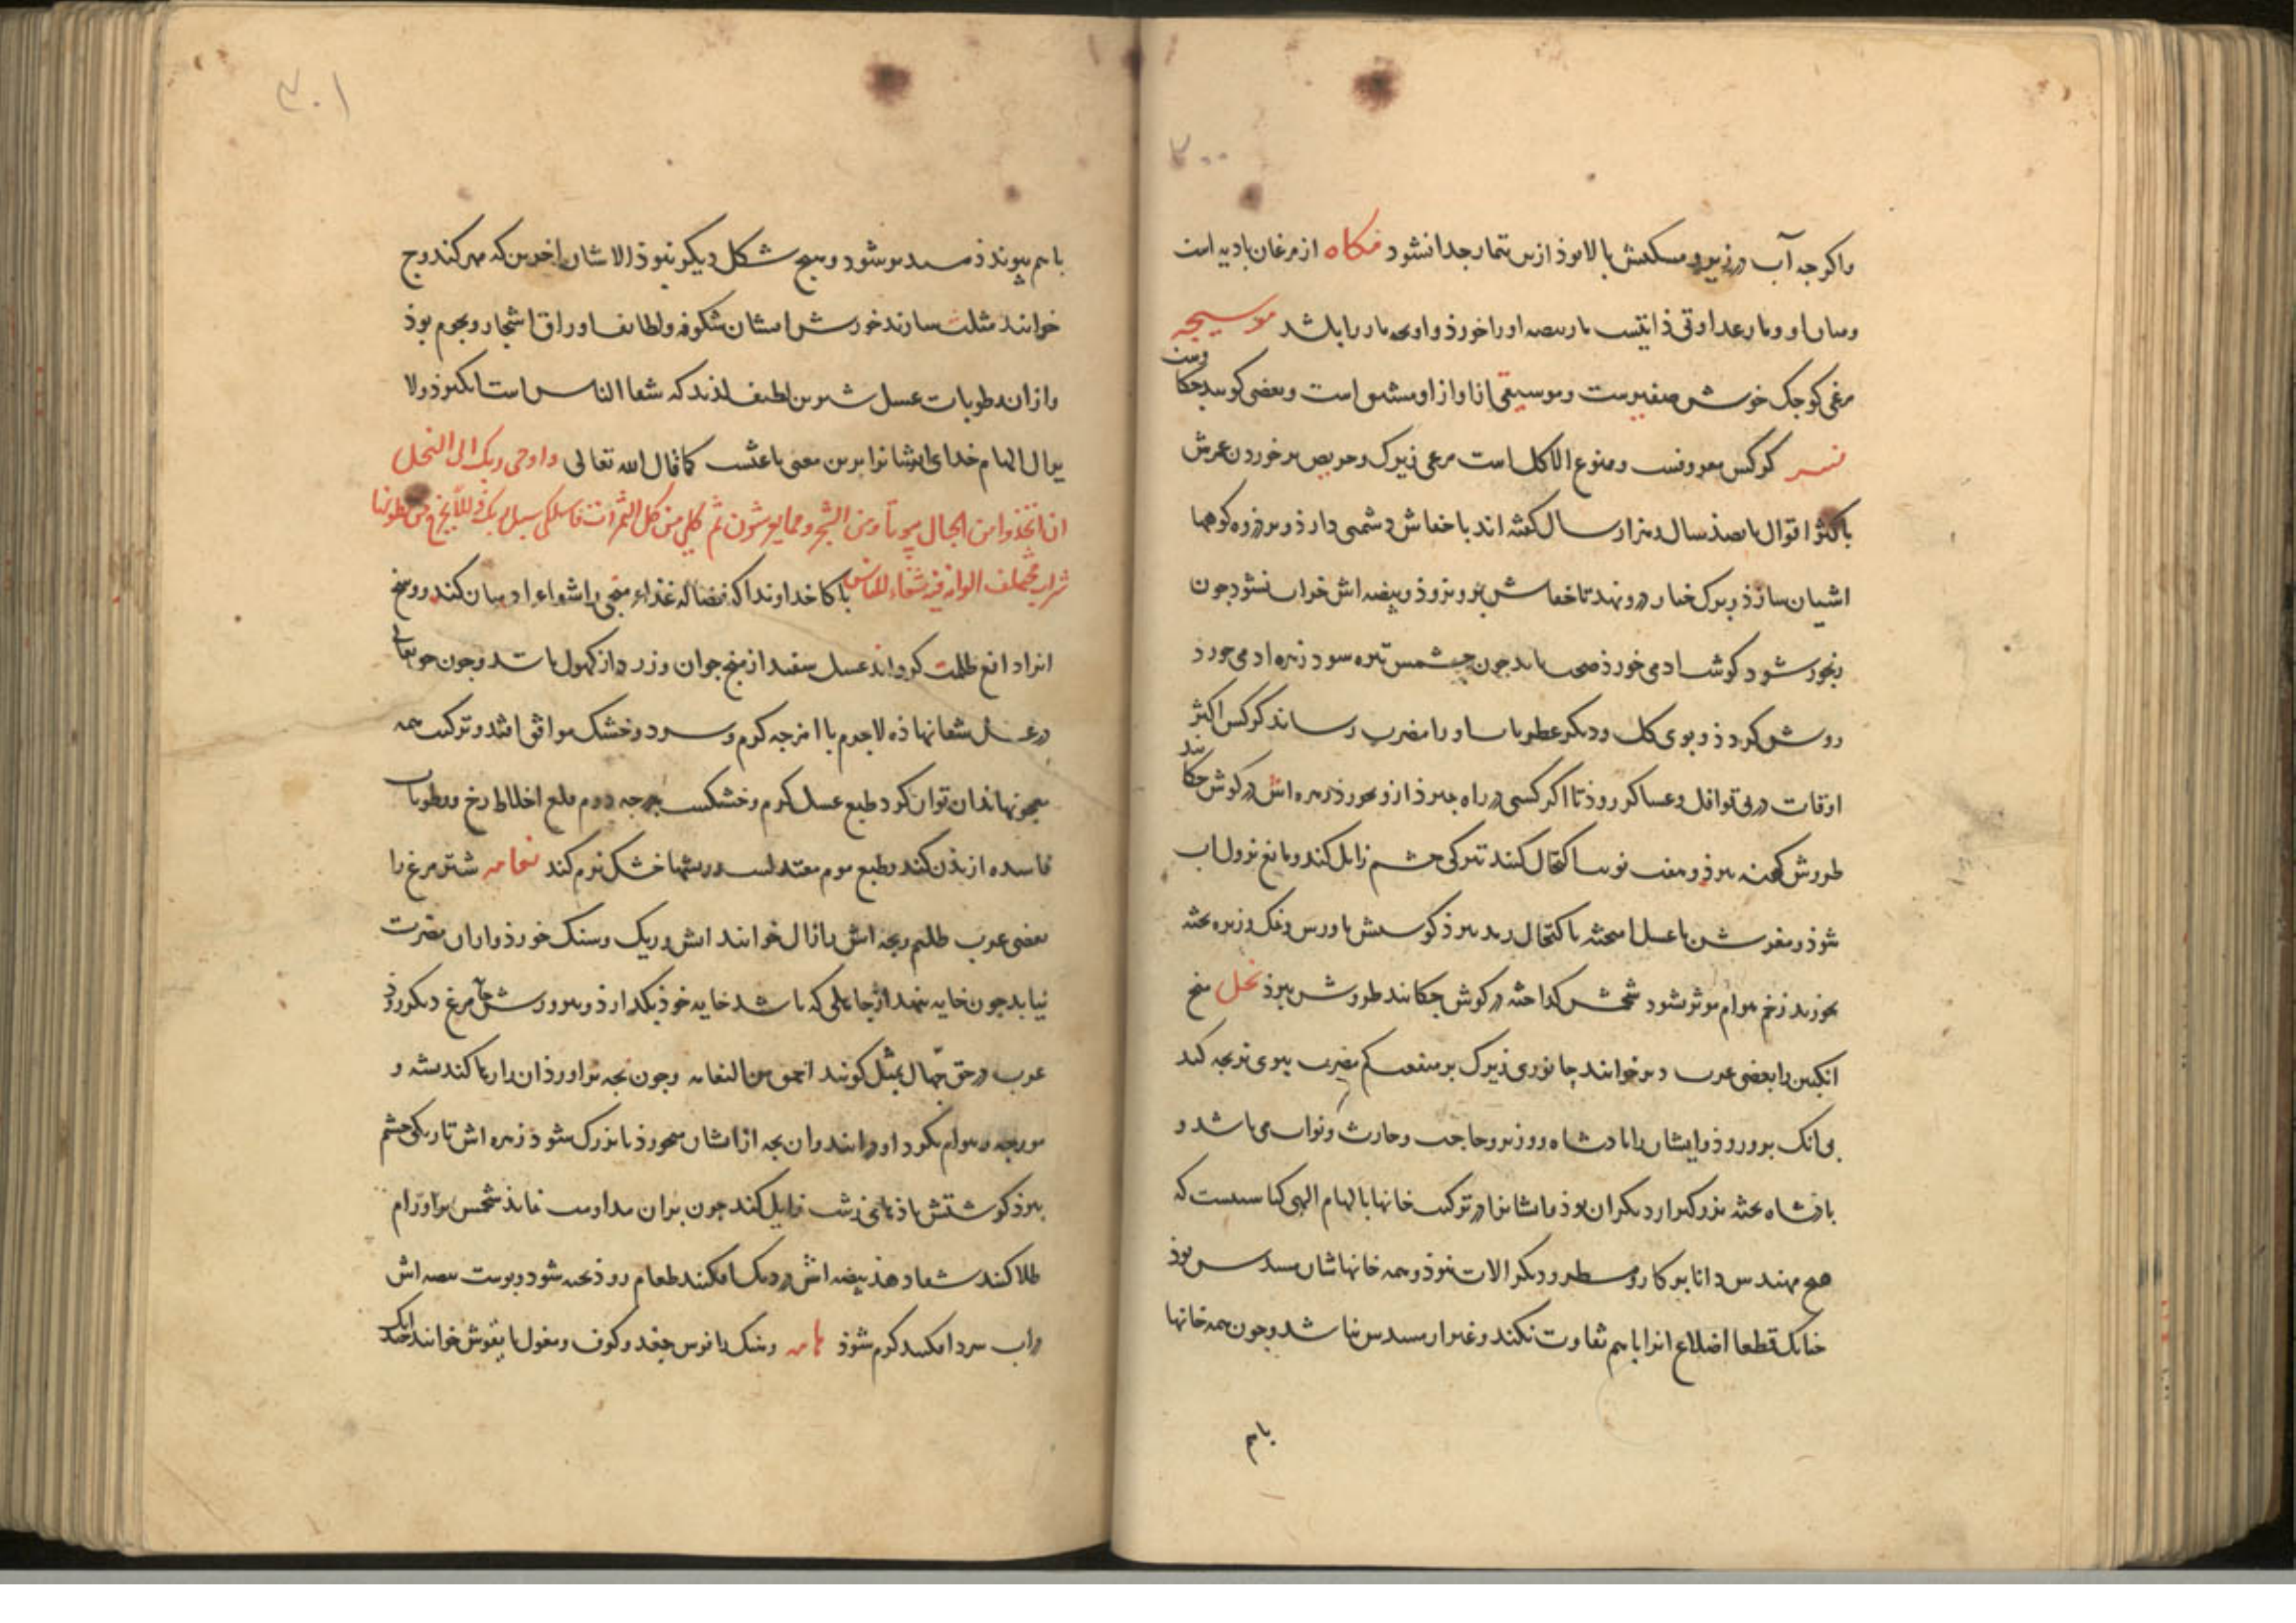 ۳۰۰
واکرجه آب در زیر و مسکنش بالا بوذ ازین تیمار جدا نشود مکاه از مرغان بادیه است
ومیان او ومار عداوتی ذاتیست مار بیضه او را خورذ واو بجه مار را باشد موسیجه
مرغی کوجک خوش صفیرست وموسیقی از اواز او مشتق است وبعضی کویند
نسر کرکس معروفست وممنوع الاکل است مرغی زیرک وحریص بر خوردن عمرش
باکثر اقوال بانصذ سال وهزار سال کفته اند با خفاش دشمنی دارذ وبر ذروه کوهها
اشیان سازذ وبرک خیار درو نهد تا خفاش برو نروذ وبیضه اش خراب نشود جون
رنجور شود کوشت ادمی خورذ صحت یابد جون جشمش تیره شود زهره ادمی خورذ
روشن کردذ وبوی کل ودیکر عطریات او را مضرت رساند کرکس اکثر
اوقات در پی قوافل وعساکر روذ تا اکر کسی در راه بمیرذ ازو بخورذ زهره اش در کوش جکانند
طروش کهنه ببرذ وهفت نوبت اکتحال کنند تیرکی جشم زایل کند ومانع نزول اب
شوذ ومغزش با عسل امیخته باکتحال رمد ببرذ کوشتش با ورس ونمک وزیره بخته
بخورند زخم هوام موثر نشود شحمش کداخته در کوش جکانند طروش ببرذ نحل منج
انکبین را بعضی عرب دبر خوانند جانوری زیرک بر منفعت کم مضرت بیوی توجه کند
بی انک برو روذ وایشان را پادشاه ووزیر وحاجب وحارث ونواب می باشد و
پادشاه بجثه بزرکتر از دیکران بوذ وایشانرا در ترکیب خانها بالهام الهی کیاستیست که
هیج مهندس دانا ببرکار ومسطر ودیکر الات نتوذ وهمه خانهاشان مسدس بوذ
جنانک قطعا اضلاع انرا باهم تفاوت نکند وغیر از مسدس نباشد وجون همه خانها
باهم
۳۰۱
باهم پیوندذ مسدس شود وهیج شکل دیکر نبوذ الا شان اخرین که مهر کند وج
خوانند مثلث سازند خورش ایشان شکوفه ولطایف اوراق اشجار ونجوم بوذ
وازان رطوبات عسل شیرین لطیف لذیذ که شفاالناس است انکیزذ ولا
یزال الهام خدای ایشانرا برین معنی باعثست کما قال الله تعالی واوحی ربک الی النحل
ان اتخذی من الجبال بیوتا ومن الشجر ومما یعرشون ثم کلی من کل الثمرات فاسلکی سبل ربک ذللا یخرج من بطونها
شراب مختلف الوانه فیه شفاء للناس پاکا خداوندا که فضاله غذاء منجی را شفاء ادمیان کند ووسخ
انرا دافع ظلمت کرداند عسل سفید از منج جوان وزرد از کهول باشد وجون حق تعالی
در عسل شفا نهاذه لاجرم با امزجه کرم وسرد وخشک موافق افتد وترکیب همه
معجونها بذان توان کرد طبع عسل کرم وخشکست بدرجه دوم قلع اخلاط زخ ورطوبات
فاسده از بدن کند وطبع موم معتدلست ریشها خشک نرم کند نعامه شترمرغ را
بعضی عرب ظلیم وبجه اش را رال خوانند اتش وریک وسنک خورذ وازان مضرت
نیابد جون خایه نهد از جایلی که باشد خایه خوذ بکذارذ وبپرورش خایه مرغ دیکر روذ
عرب در حق جهال بمثل کویند احمق من النعامه وجون بجه براورذ ان را رها کند پشه و
مورجه وهوام بکرد او درایند وان بجه ازایشان میخورذ تا بزرک شوذ زهره اش تاریکی جشم
ببرذ کوشتش باذهای زشت زایل کند جون بران مداومت نمایذ شحمش براورام
طلا کنند شفا دهذ بیضه اش در دیک افکنند طعام زوذ بخته شود وبوست بیضه اش
در اب سرد افکنند کرم شوذ هامه وبنک را فرس جغد وکوف ومغول یابقوش خوانند